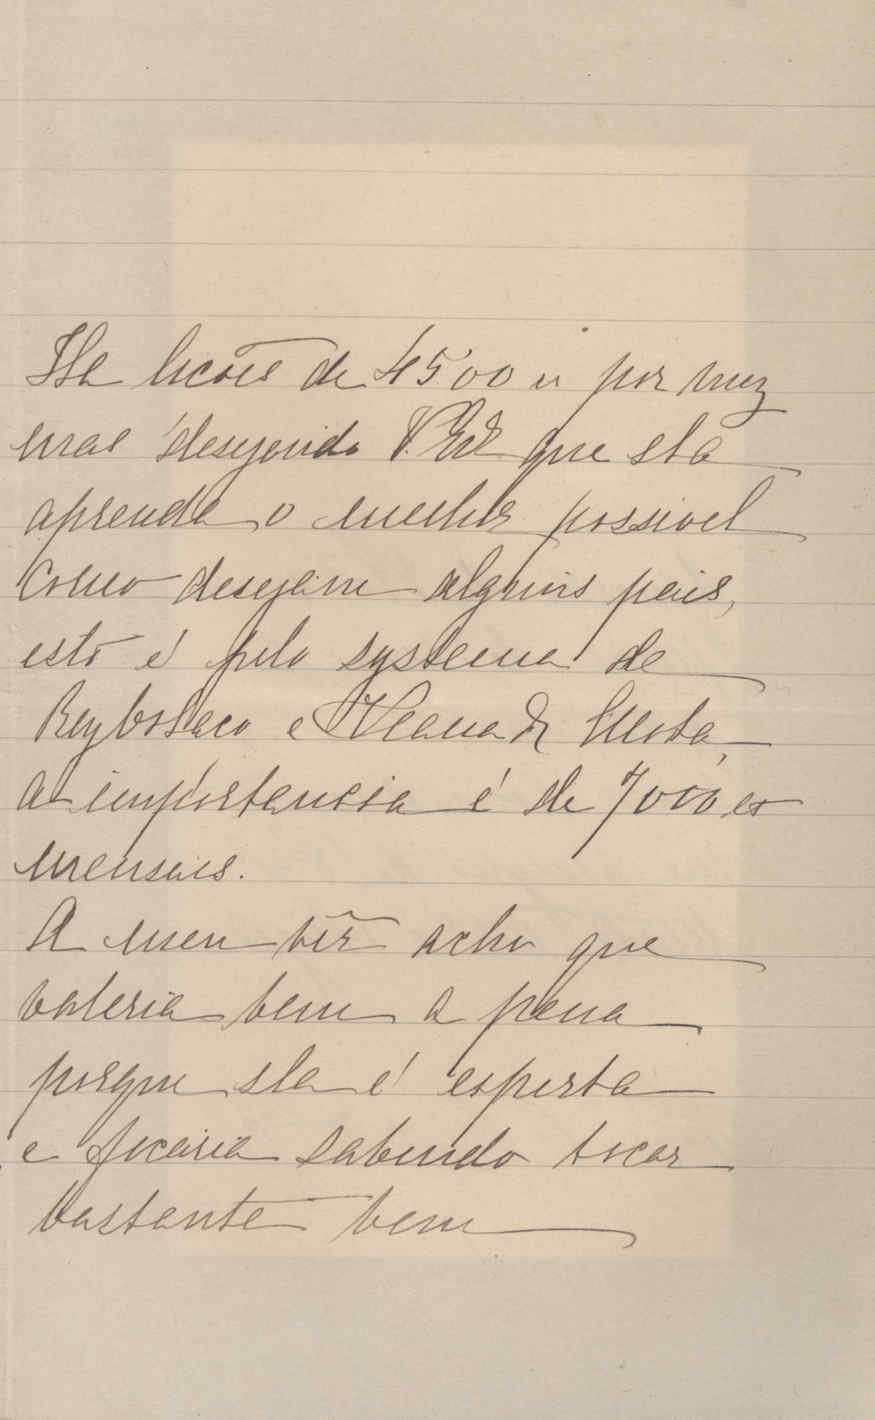 Ha licões de 4500 rs por mez
mas desejando V. Exª que ela
aprenda o melhor possivel
como desejam alguns pais,
isto é pelo systema de
e Vianna da Mota,
a importancia é de 7000 rs
mensaes.
A meu vêr acho que
valeria bem a pena
porque ela é esperta
e ficaria sabendo tocar
bastante bem